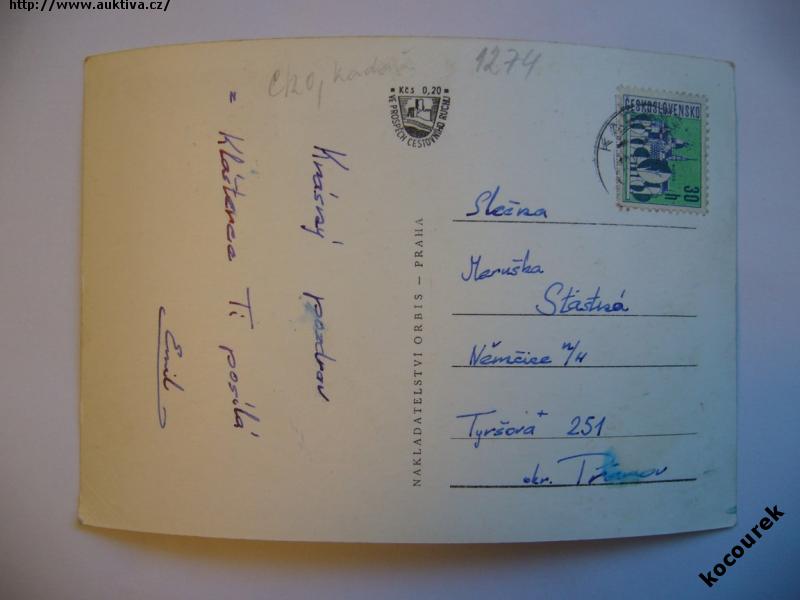 http://www.auktiva.cz/
1274
Kčs 0,20
VE PROSPĚCH CESTOVNÍHO RUCHU
ČESKOSLOVENSKO
30 h
Krásný pozdrav
z Klášterce Ti posílá
Emil
NAKLADATELSTVÍ ORBIS – PRAHA
Slečna
Maruška
Šťastná
Němčice n/H
Tyršova 251
okr.
kocourek